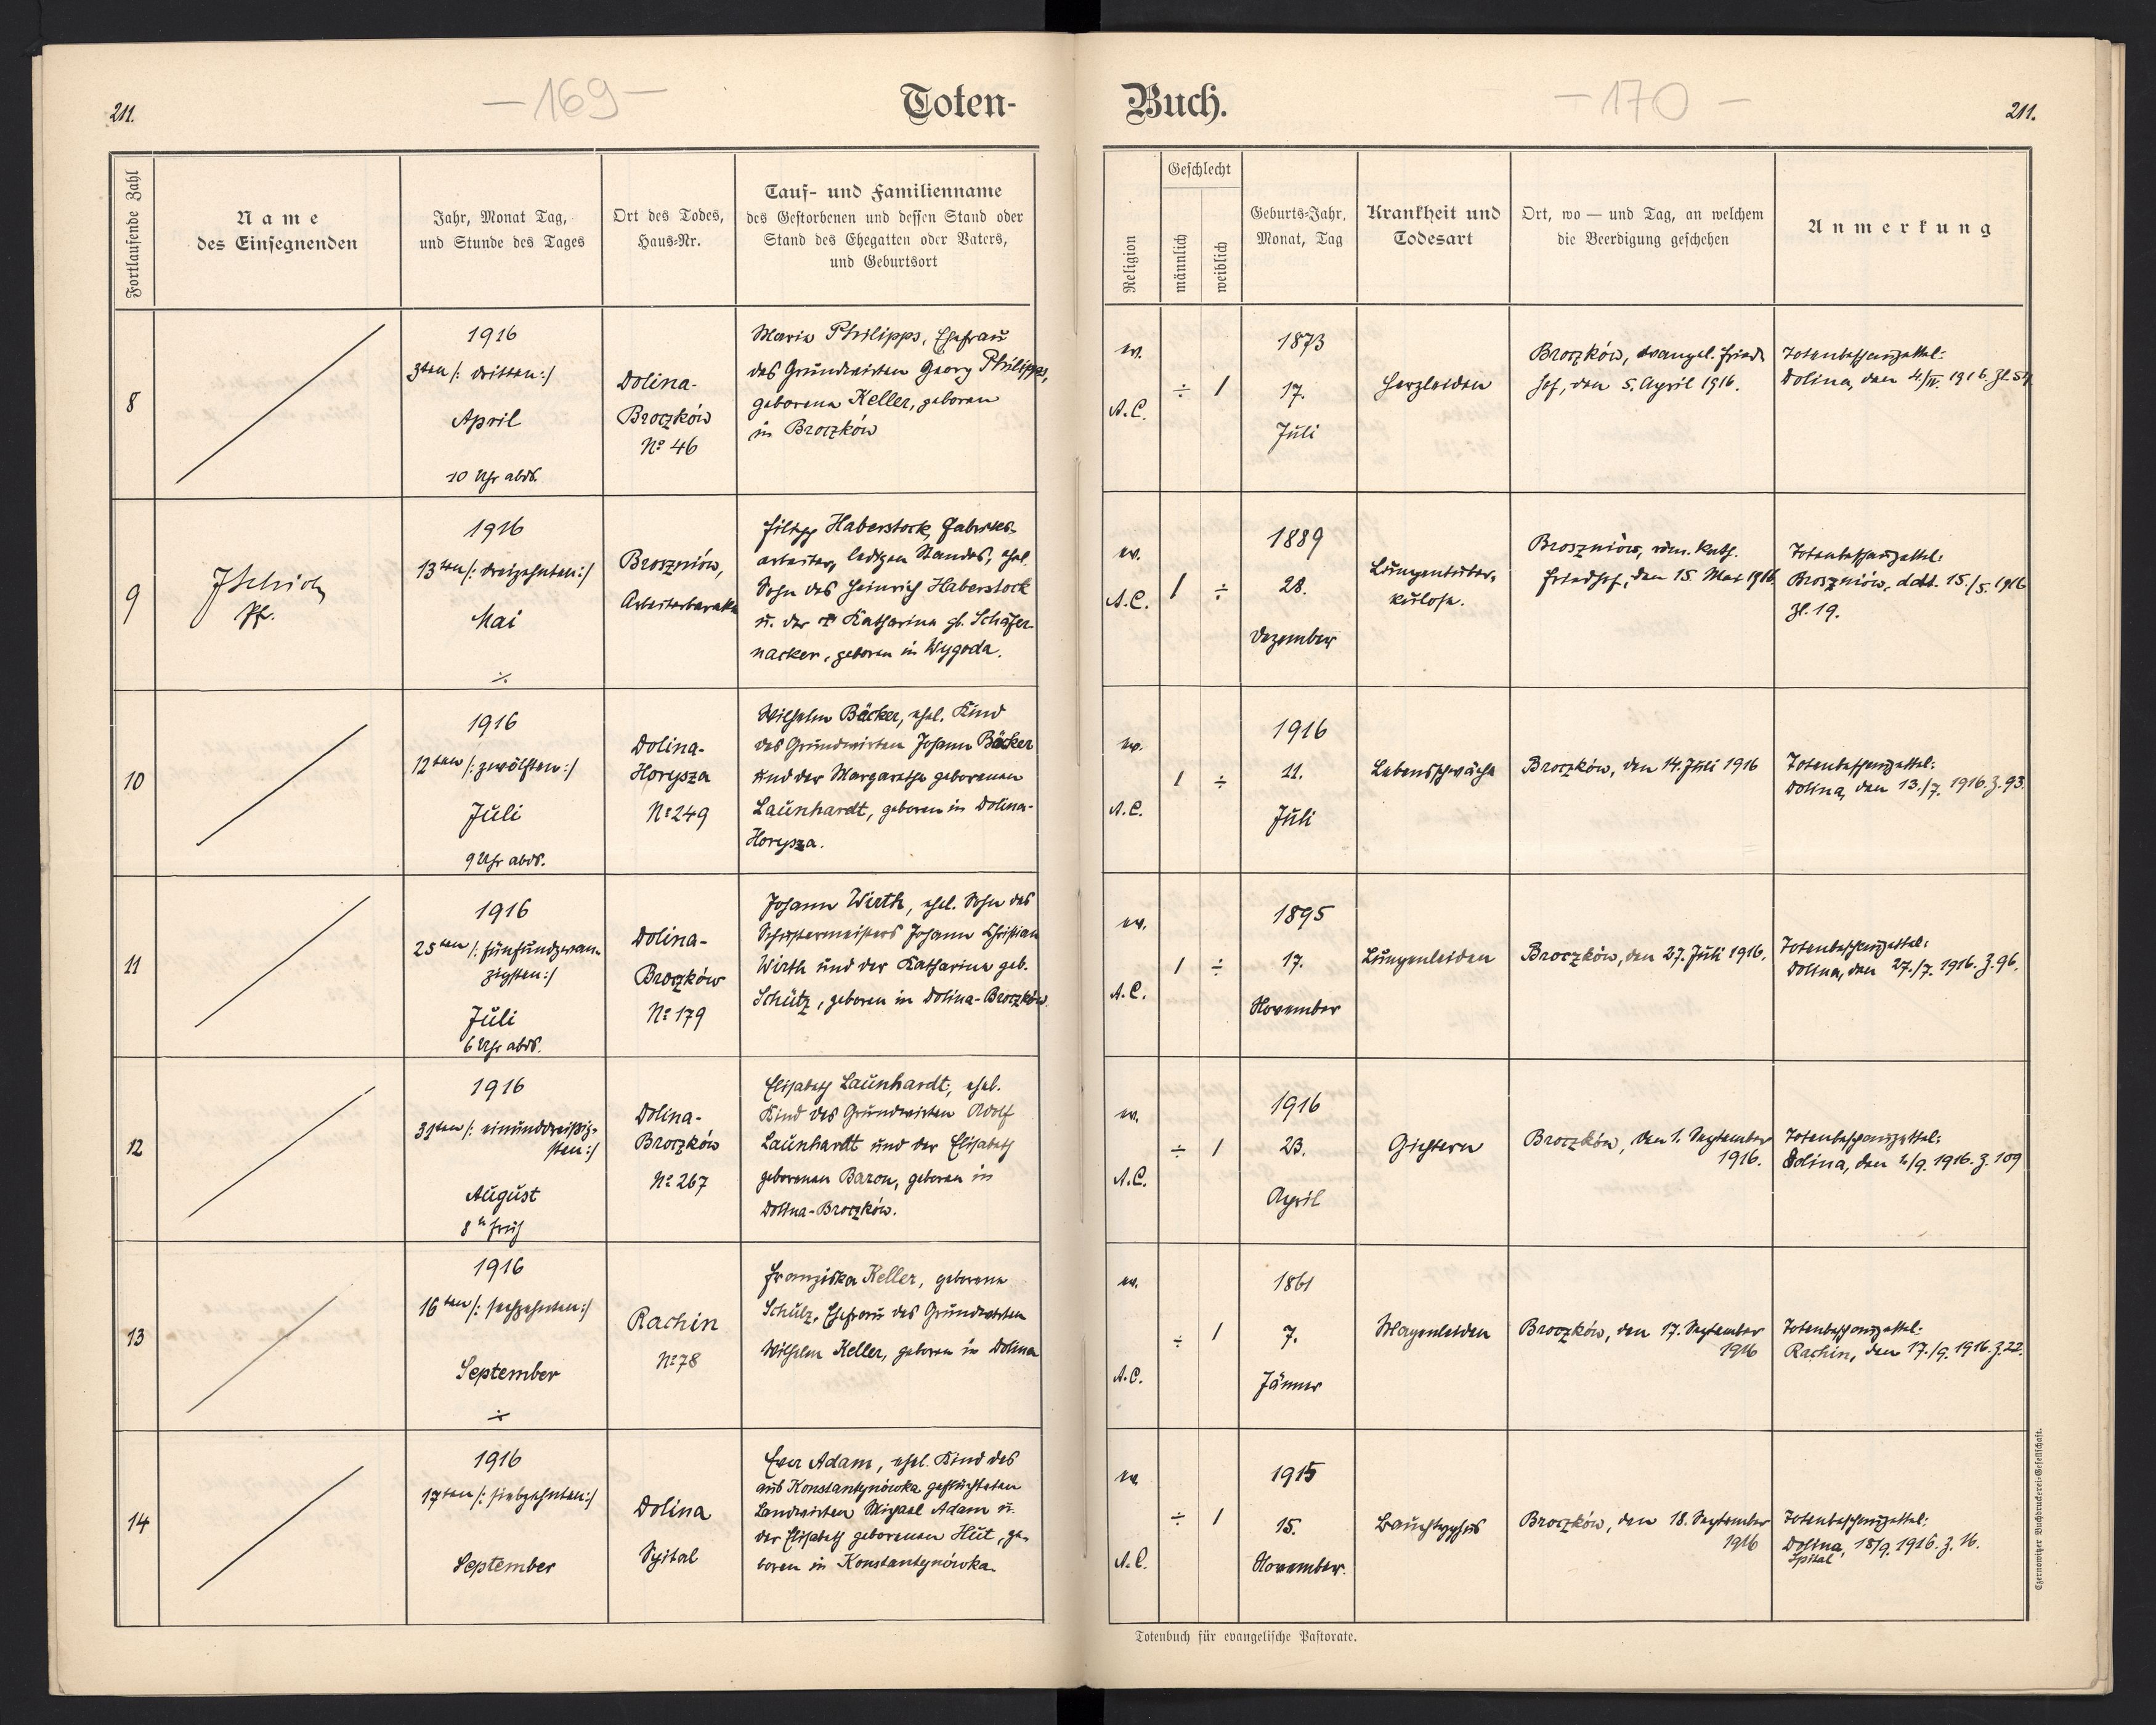 211.
— 169 —
Toten-
Fortlaufende Zahl
Name
des Einsegnenden
Jahr, Monat Tag,
und Stunde des Tages
Ort des Todes,
Haus-Nr.
Tauf- und Familienname
des Gestorbenen und dessen Stand oder
Stand des Ehegatten oder Vaters,
und Geburtsort
8
1916
3ten /: dritten :/
April
10 Uhr abds.
Dolina-
Broczków
No 46
Maria Philipps, Ehefrau
des Grundwirten Georg Philipps,
geborene Keller, geboren
in Broczków
9
Pfr.
1916
13ten /: dreizehnten :/
Mai
÷
Broszniów,
Arbeiterbaracke
Filipp Haberstock, Fabriks-
arbeiter, ledigen Standes, ehel.
Sohn des Heinrich Haberstock
u. der † Katharina gb. Schäfer-
nacker, geboren in Wygoda.
10
1916
12ten /: zwölften :/
Juli
9 Uhr abds.
Dolina-
Horysza
No 249
Wilhelm Bäcker, ehel. Kind
des Grundwirten Johann Bäcker
und der Margaretha geborenen
Launhardt, geboren in Dolina-
Horysza.
11
1916
25ten /: fünfundzwan-
zigsten :/
Juli
6 Uhr abds.
Dolina-
Broczków
No 179
Johann Wirth, ehel. Sohn des
Schustermeisters Johann Christian
Wirth und der Katharina geb.
Schütz, geboren in Dolina-Broczków.
12
1916
31ten /: einunddreißig-
sten :/
August
8 h früh
Dolina-
Broczków
No 267
Elisabeth Launhardt, ehel.
Kind des Grundwirten Adolf
Launhardt und der Elisabeth
geborenen Baron, geboren in
Dolina-Broczków.
13
1916
16ten /: sechzehnten :/
September
÷
Rachin
No 78
Franziska Keller, geborene
Schulz, Ehefrau des Grundwirten
Wilhelm Keller, geboren in Dolina
14
1916
17ten /: siebzehnten :/
September
Dolina
Spital
Eva Adam, ehel. Kind des
aus Konstantynówka geflüchteten
Landwirten Michael Adam u.
der Elisabeth geborenen Hüt, ge-
boren in Konstantynówka.
Buch.
— 170 —
211.
Religion
Geschlecht
männlich
weiblich
Geburts-Jahr,
Monat, Tag
Krankheit und
Todesart
Ort, wo — und Tag, an welchem
die Beerdigung geschehen
Anmerkung
ev.
A.C.
÷
1
1873
17.
Juli
Herzleiden
Broczków, evangel. Fried-
hof, den 5. April 1916.
Totenbeschauzettel:
Dolina, den 4./IV. 1916. Zl. 54
ev.
A.C.
1
÷
1889
28.
Dezember
Lungentuber-
kulose.
Broszniów, röm. kath.
Friedhof, den 15. Mai 1916.
Totenbeschauzettel:
Broszniów, ddt. 15./5. 1916
Zl. 19.
ev.
A.C.
1
÷
1916
11.
Juli
Lebensschwäche
Broczków, den 14. Juli 1916
Totenbeschauzettel:
Dolina, den 13./7. 1916. Z. 93.
ev.
A.C.
1
÷
1895
17.
November
Lungenleiden
Broczków, den 27. Juli 1916.
Totenbeschauzettel:
Dolina, den 27./7. 1916. Z. 96.
ev.
A.C.
÷
1
1916
23.
April
Gichtern
Broczków, den 1. September
1916.
Totenbeschauzettel:
Dolina, den 1./9. 1916. Z. 109
ev.
A.C.
÷
1
1861
7.
Jänner
Magenleiden
Broczków, den 17. September
1916
Totenbeschauzettel:
Rachin, den 17./9. 1916. Z. 22.
ev.
A.C.
÷
1
1915
15.
November.
Bauchtyphus
Broczków, den 18. September
1916
Totenbeschauzettel:
Dolina, 18/9. 1916. Z. 16.
Spital
Totenbuch für evangelische Pastorate.
Czernowitzer Buchdruckerei-Gesellschaft.